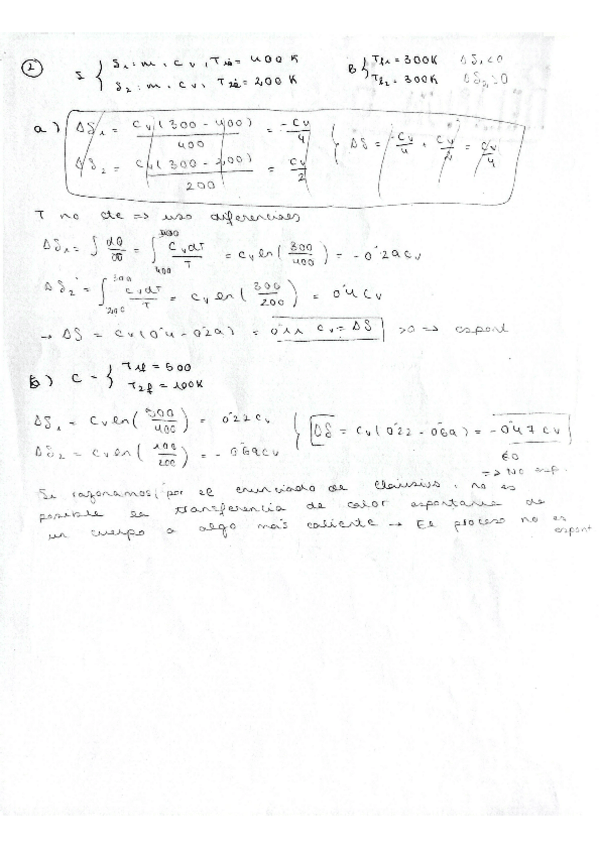 ② I { S₁: m, Cv, T₁ᵢ = 400 K B { Tf₁ = 300K ΔS₁<0
S₂: m, Cv, T₂ᵢ = 200 K Tf₂ = 300K ΔS₂>0
a) ΔS₁ = Cv(300-400)/400 = -Cv/4 { ΔS = -Cv/4 + Cv/2 = Cv/4
ΔS₂ = Cv(300-200)/200 = Cv/2
T no cte => uso diferenciales
ΔS₁ = ∫ dQ/T = ∫₄₀₀³⁰⁰ CvdT/T = Cv ln(300/400) = -0'29Cv
ΔS₂ = ∫₂₀₀³⁰⁰ CvdT/T = Cv ln(300/200) = 0'4 Cv
→ ΔS = Cv(0'4 - 0'29) = 0'11 Cv = ΔS >0 => espont
b) C - { T₁f = 500
T₂f = 100K
ΔS₁ = Cv ln(500/400) = 0'22Cv { ΔS = Cv(0'22 - 0'69) = -0'47Cv
ΔS₂ = Cv ln(100/200) = -0'69Cv
<0
=> No esp.
Si razonamos por el enunciado de Clausius, no es
posible la transferencia de calor espontanea de
un cuerpo a algo más caliente → El proceso no es
espont